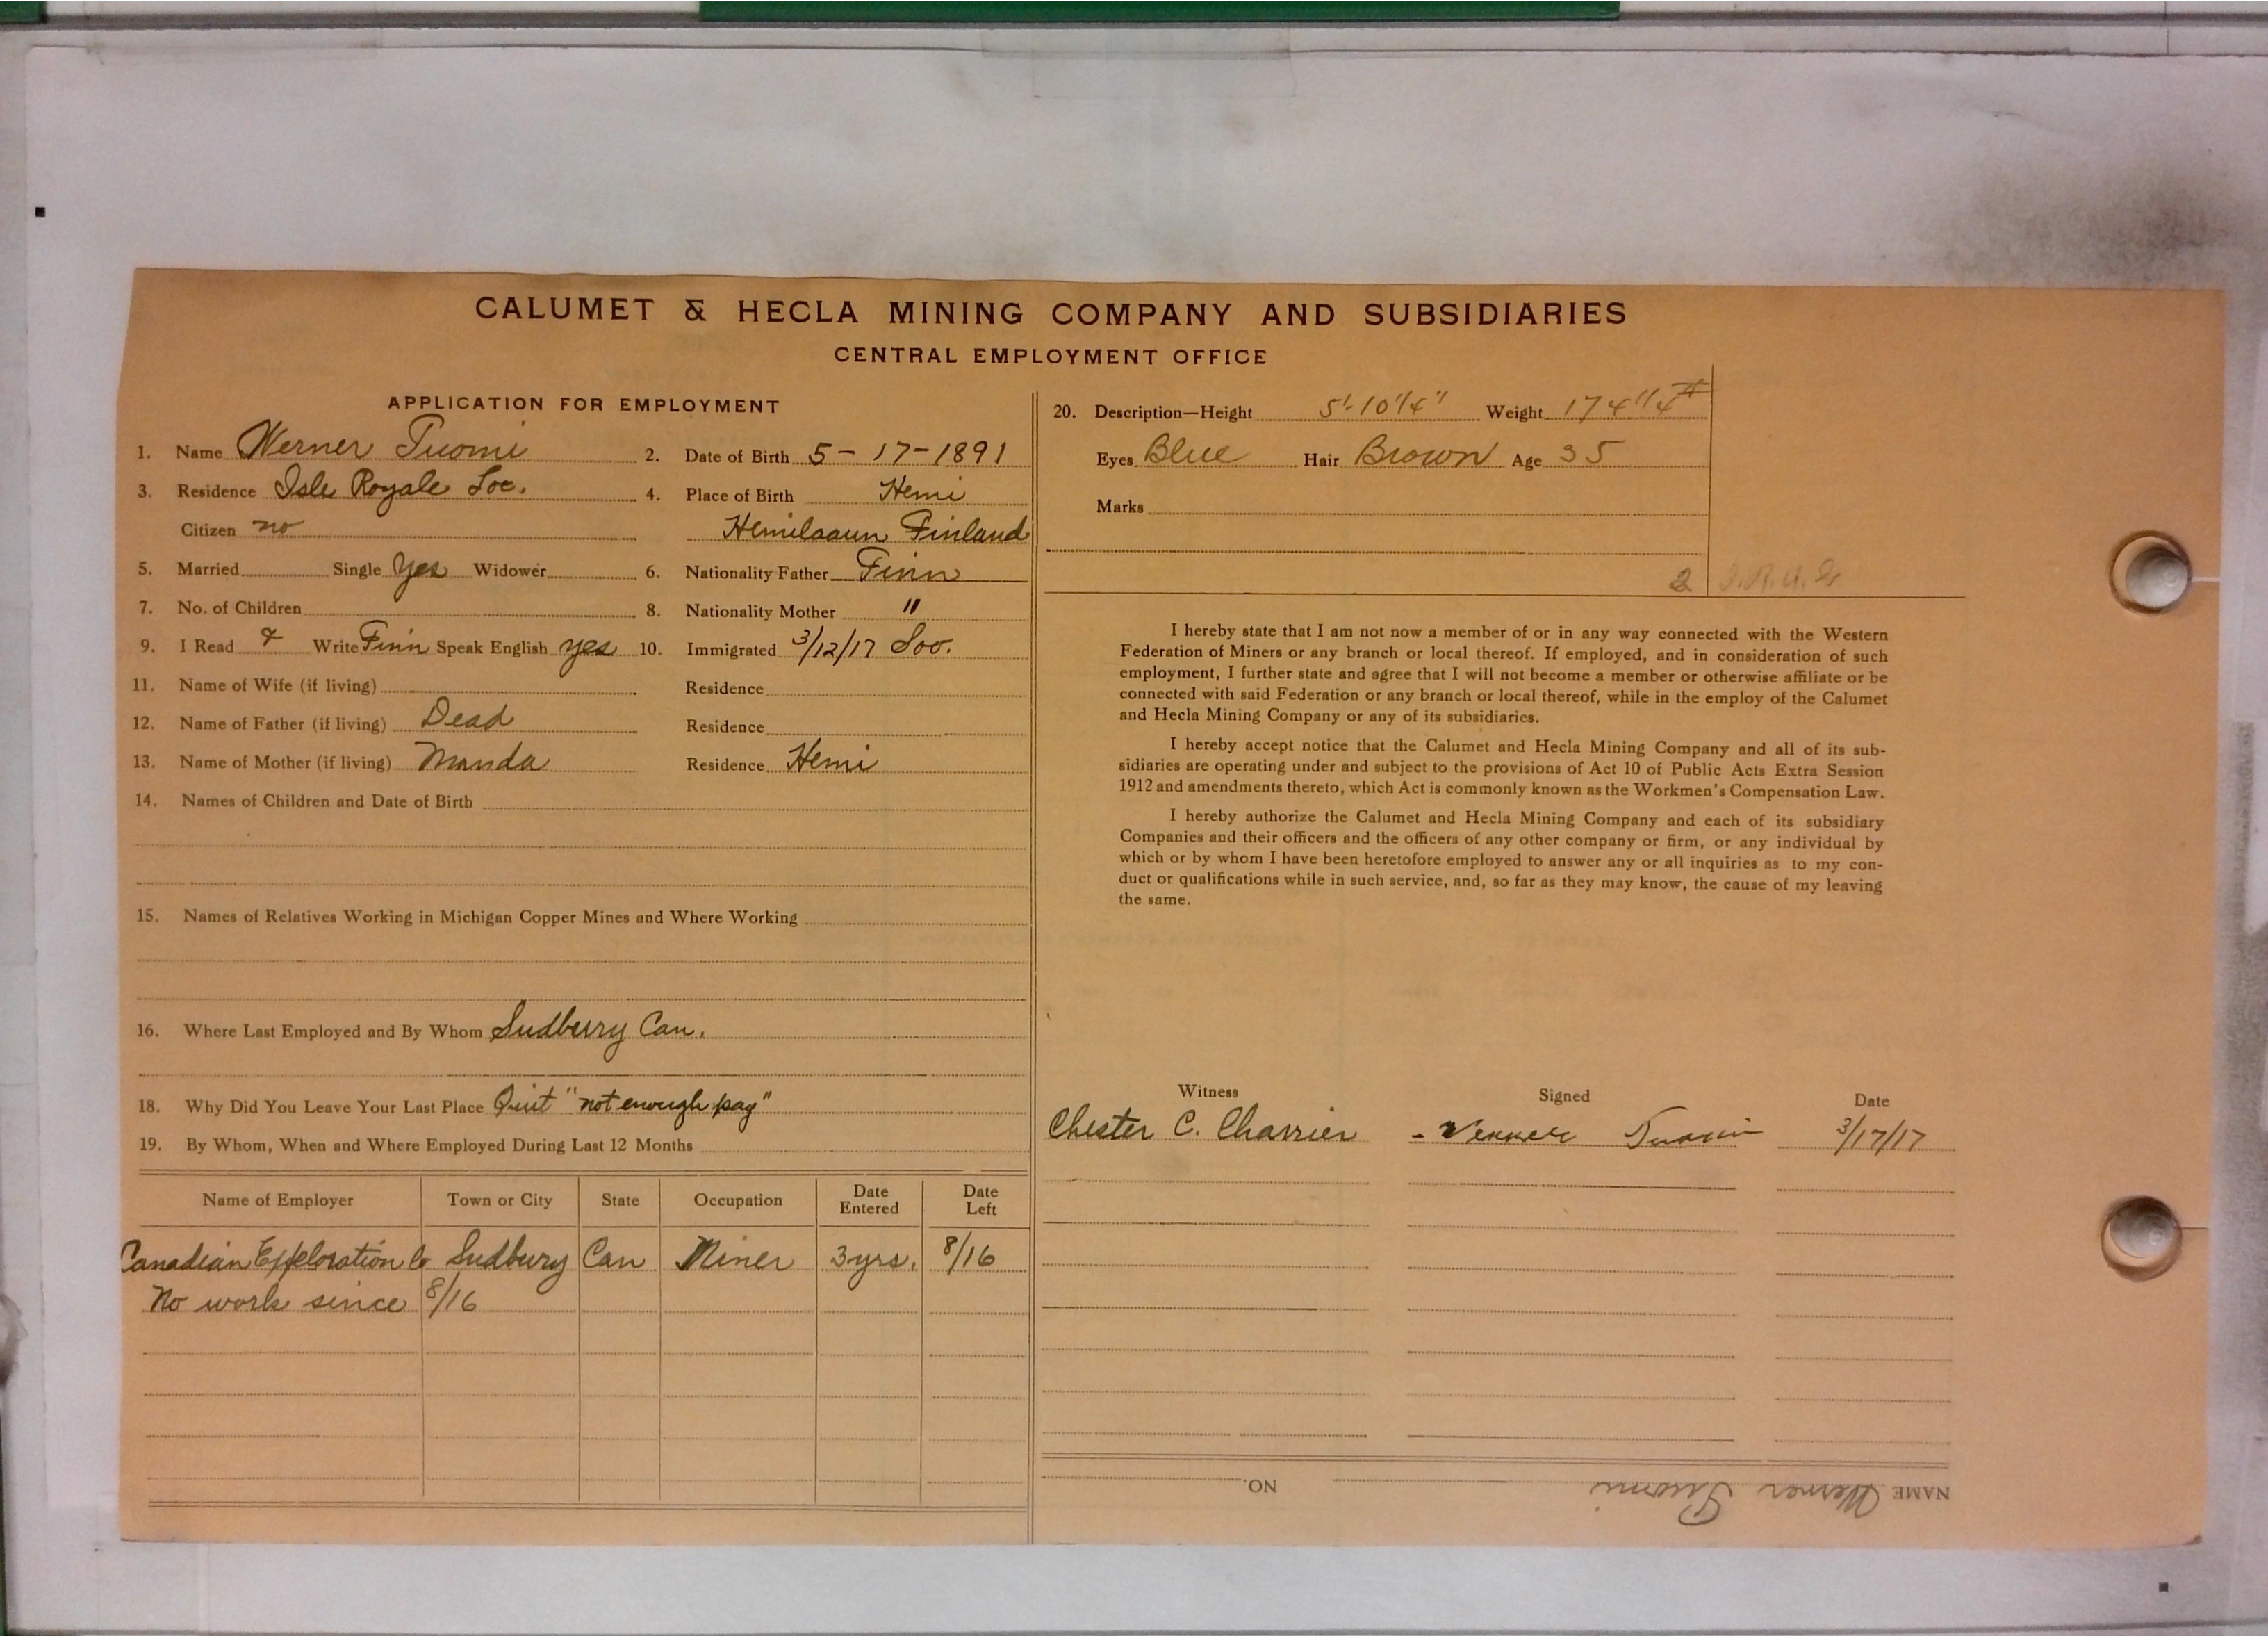 CALUMET & HECLA MINING COMPANY AND SUBSIDIARIES
CENTRAL EMPLOYMENT OFFICE
APPLICATION FOR EMPLOYMENT
1. Name Werner Tuomi 2. Date of Birth 5-17-1891
3. Residence Isle Royale Loc. 4. Place of Birth Hemi
Citizen no Finland
5. Married Single Yes Widower 6. Nationality Father Finn
7. No. of Children 8. Nationality Mother "
9. I Read & Write Finn Speak English yes 10. Immigrated 3/12/17 Soo.
11. Name of Wife (if living) Residence
12. Name of Father (if living) Dead Residence
13. Name of Mother (if living) Manda Residence Hemi
14. Names of Children and Date of Birth
15. Names of Relatives Working in Michigan Copper Mines and Where Working
16. Where Last Employed and By Whom Sudbury Can.
18. Why Did You Leave Your Last Place Quit "not enough pay"
19. By Whom, When and Where Employed During Last 12 Months
Name of Employer Town or City State Occupation Date Entered Date Left
Canadian Exploration Co Sudbury Can Miner 3 yrs. 8/16
No work since 8/16
20. Description—Height 5'-10 1/4" Weight 174 1/4 #
Eyes Blue Hair Brown Age 35
Marks
2
I hereby state that I am not now a member of or in any way connected with the Western
Federation of Miners or any branch or local thereof. If employed, and in consideration of such
employment, I further state and agree that I will not become a member or otherwise affiliate or be
connected with said Federation or any branch or local thereof, while in the employ of the Calumet
and Hecla Mining Company or any of its subsidiaries.
I hereby accept notice that the Calumet and Hecla Mining Company and all of its sub-
sidiaries are operating under and subject to the provisions of Act 10 of Public Acts Extra Session
1912 and amendments thereto, which Act is commonly known as the Workmen's Compensation Law.
I hereby authorize the Calumet and Hecla Mining Company and each of its subsidiary
Companies and their officers and the officers of any other company or firm, or any individual by
which or by whom I have been heretofore employed to answer any or all inquiries as to my con-
duct or qualifications while in such service, and, so far as they may know, the cause of my leaving
the same.
Witness Signed Date
Chester C. Charrier 3/17/17
NAME Werner Tuomi NO.